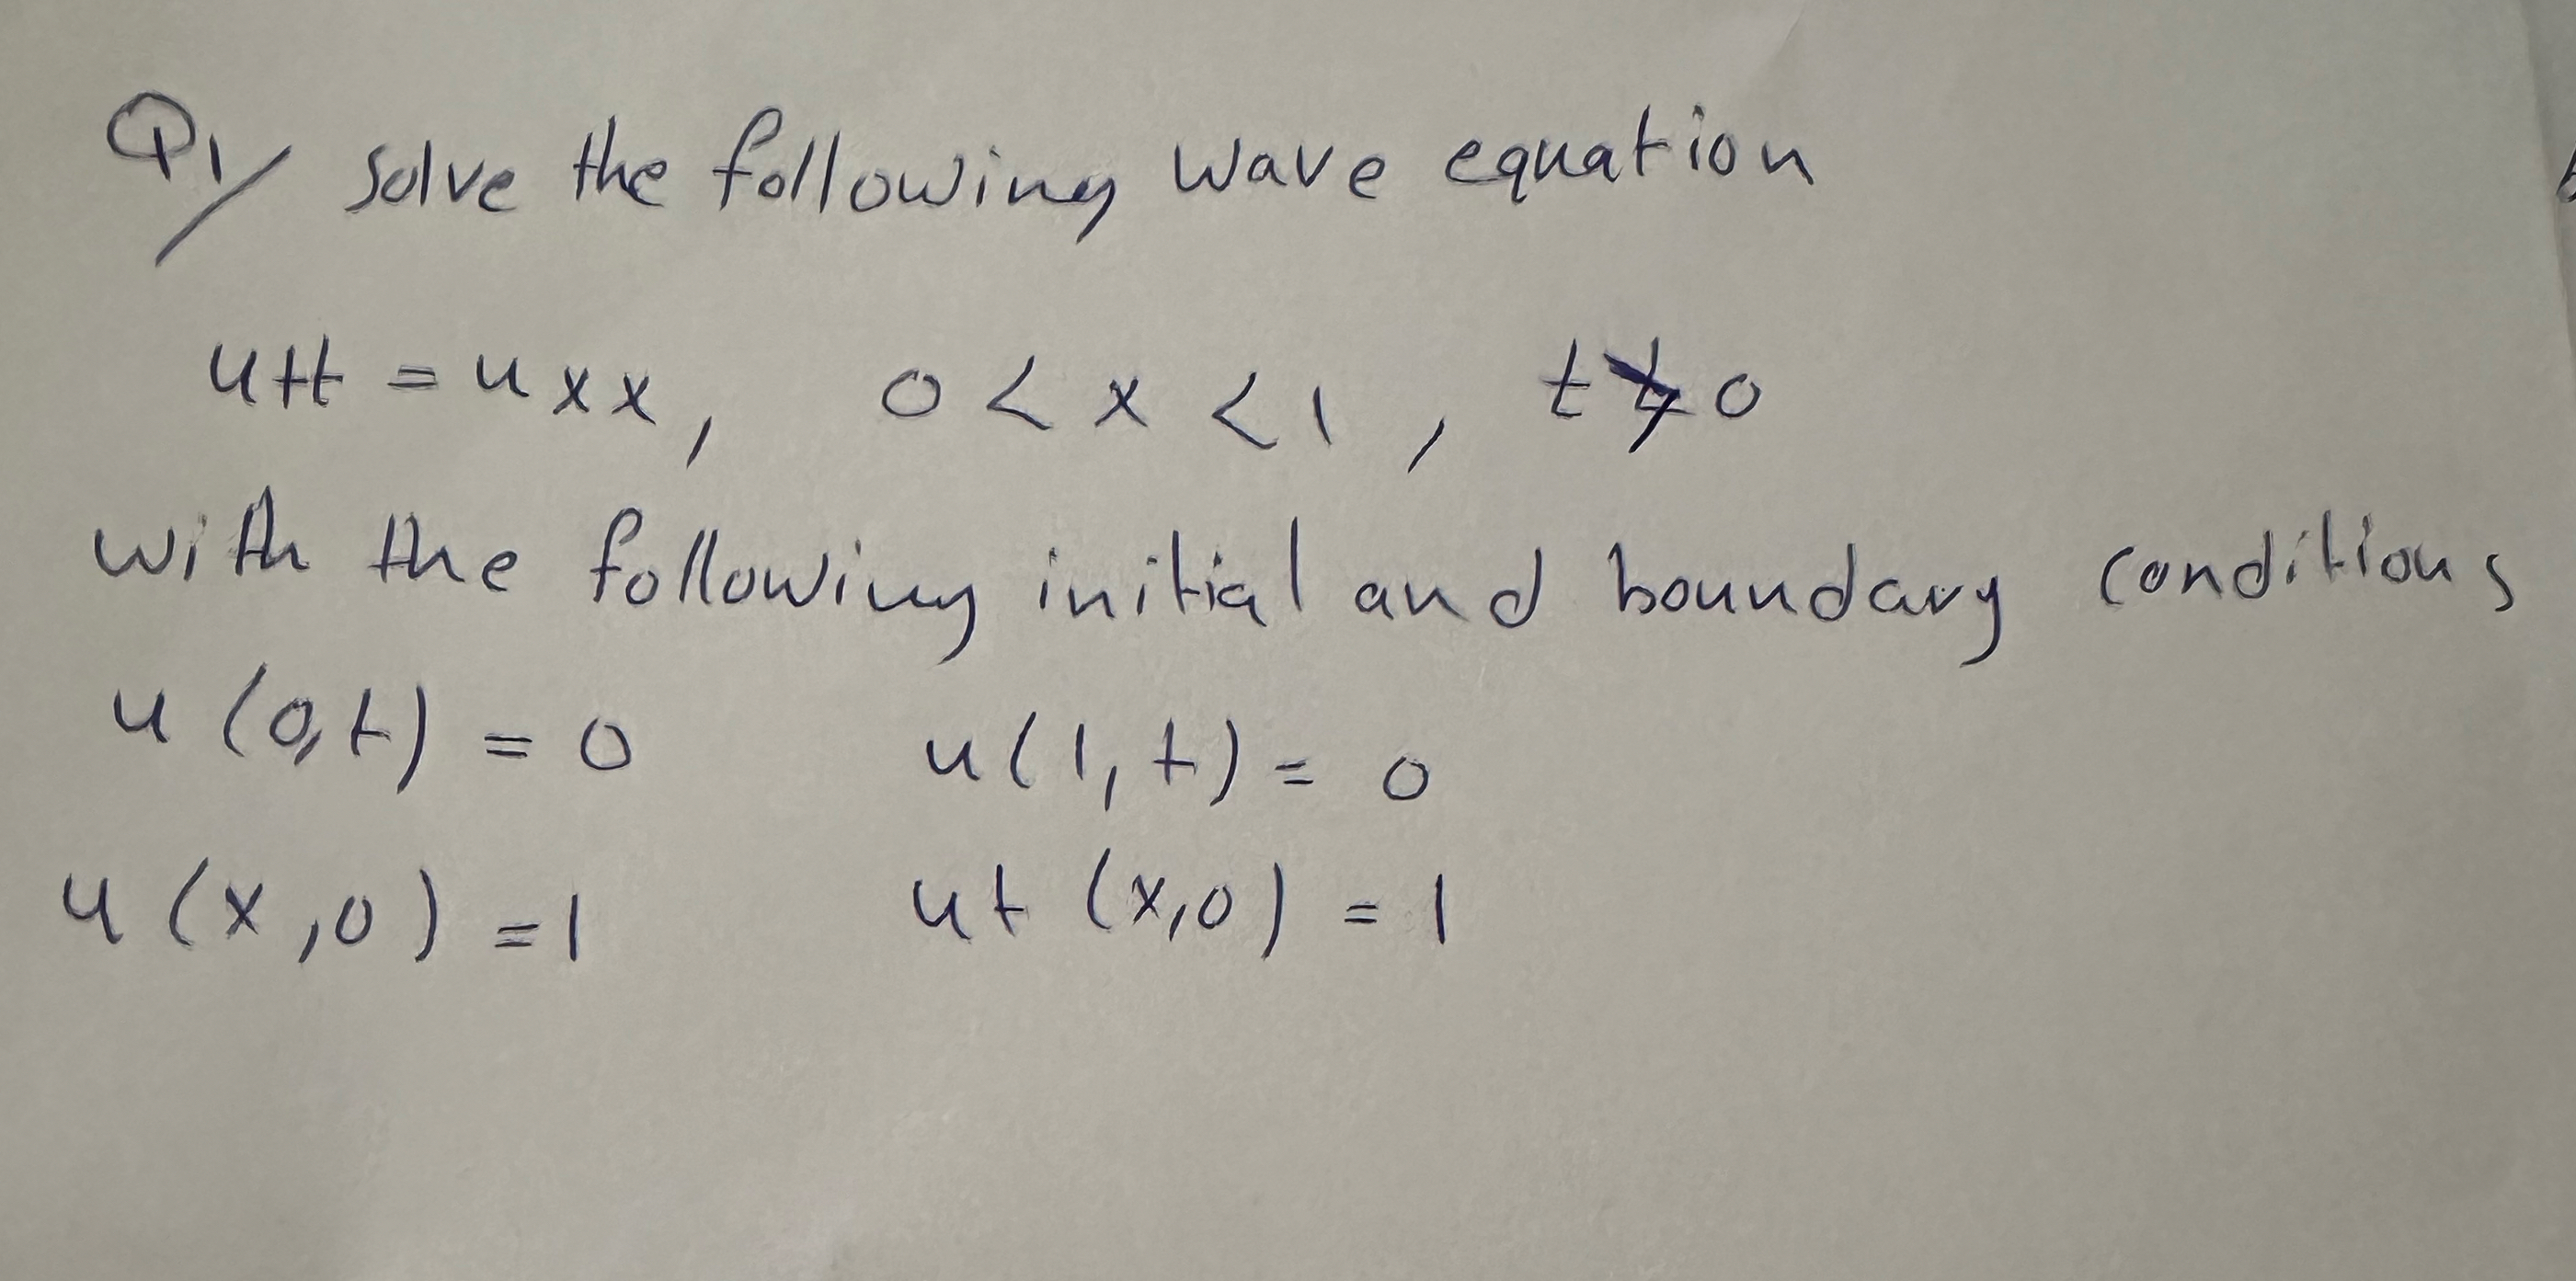 Q1/ solve the following wave equation
utt = uxx, 0 < x < 1, t > 0
with the following initial and boundary conditions
u(0,t) = 0 u(1,t) = 0
u(x,0) = 1 ut(x,0) = 1